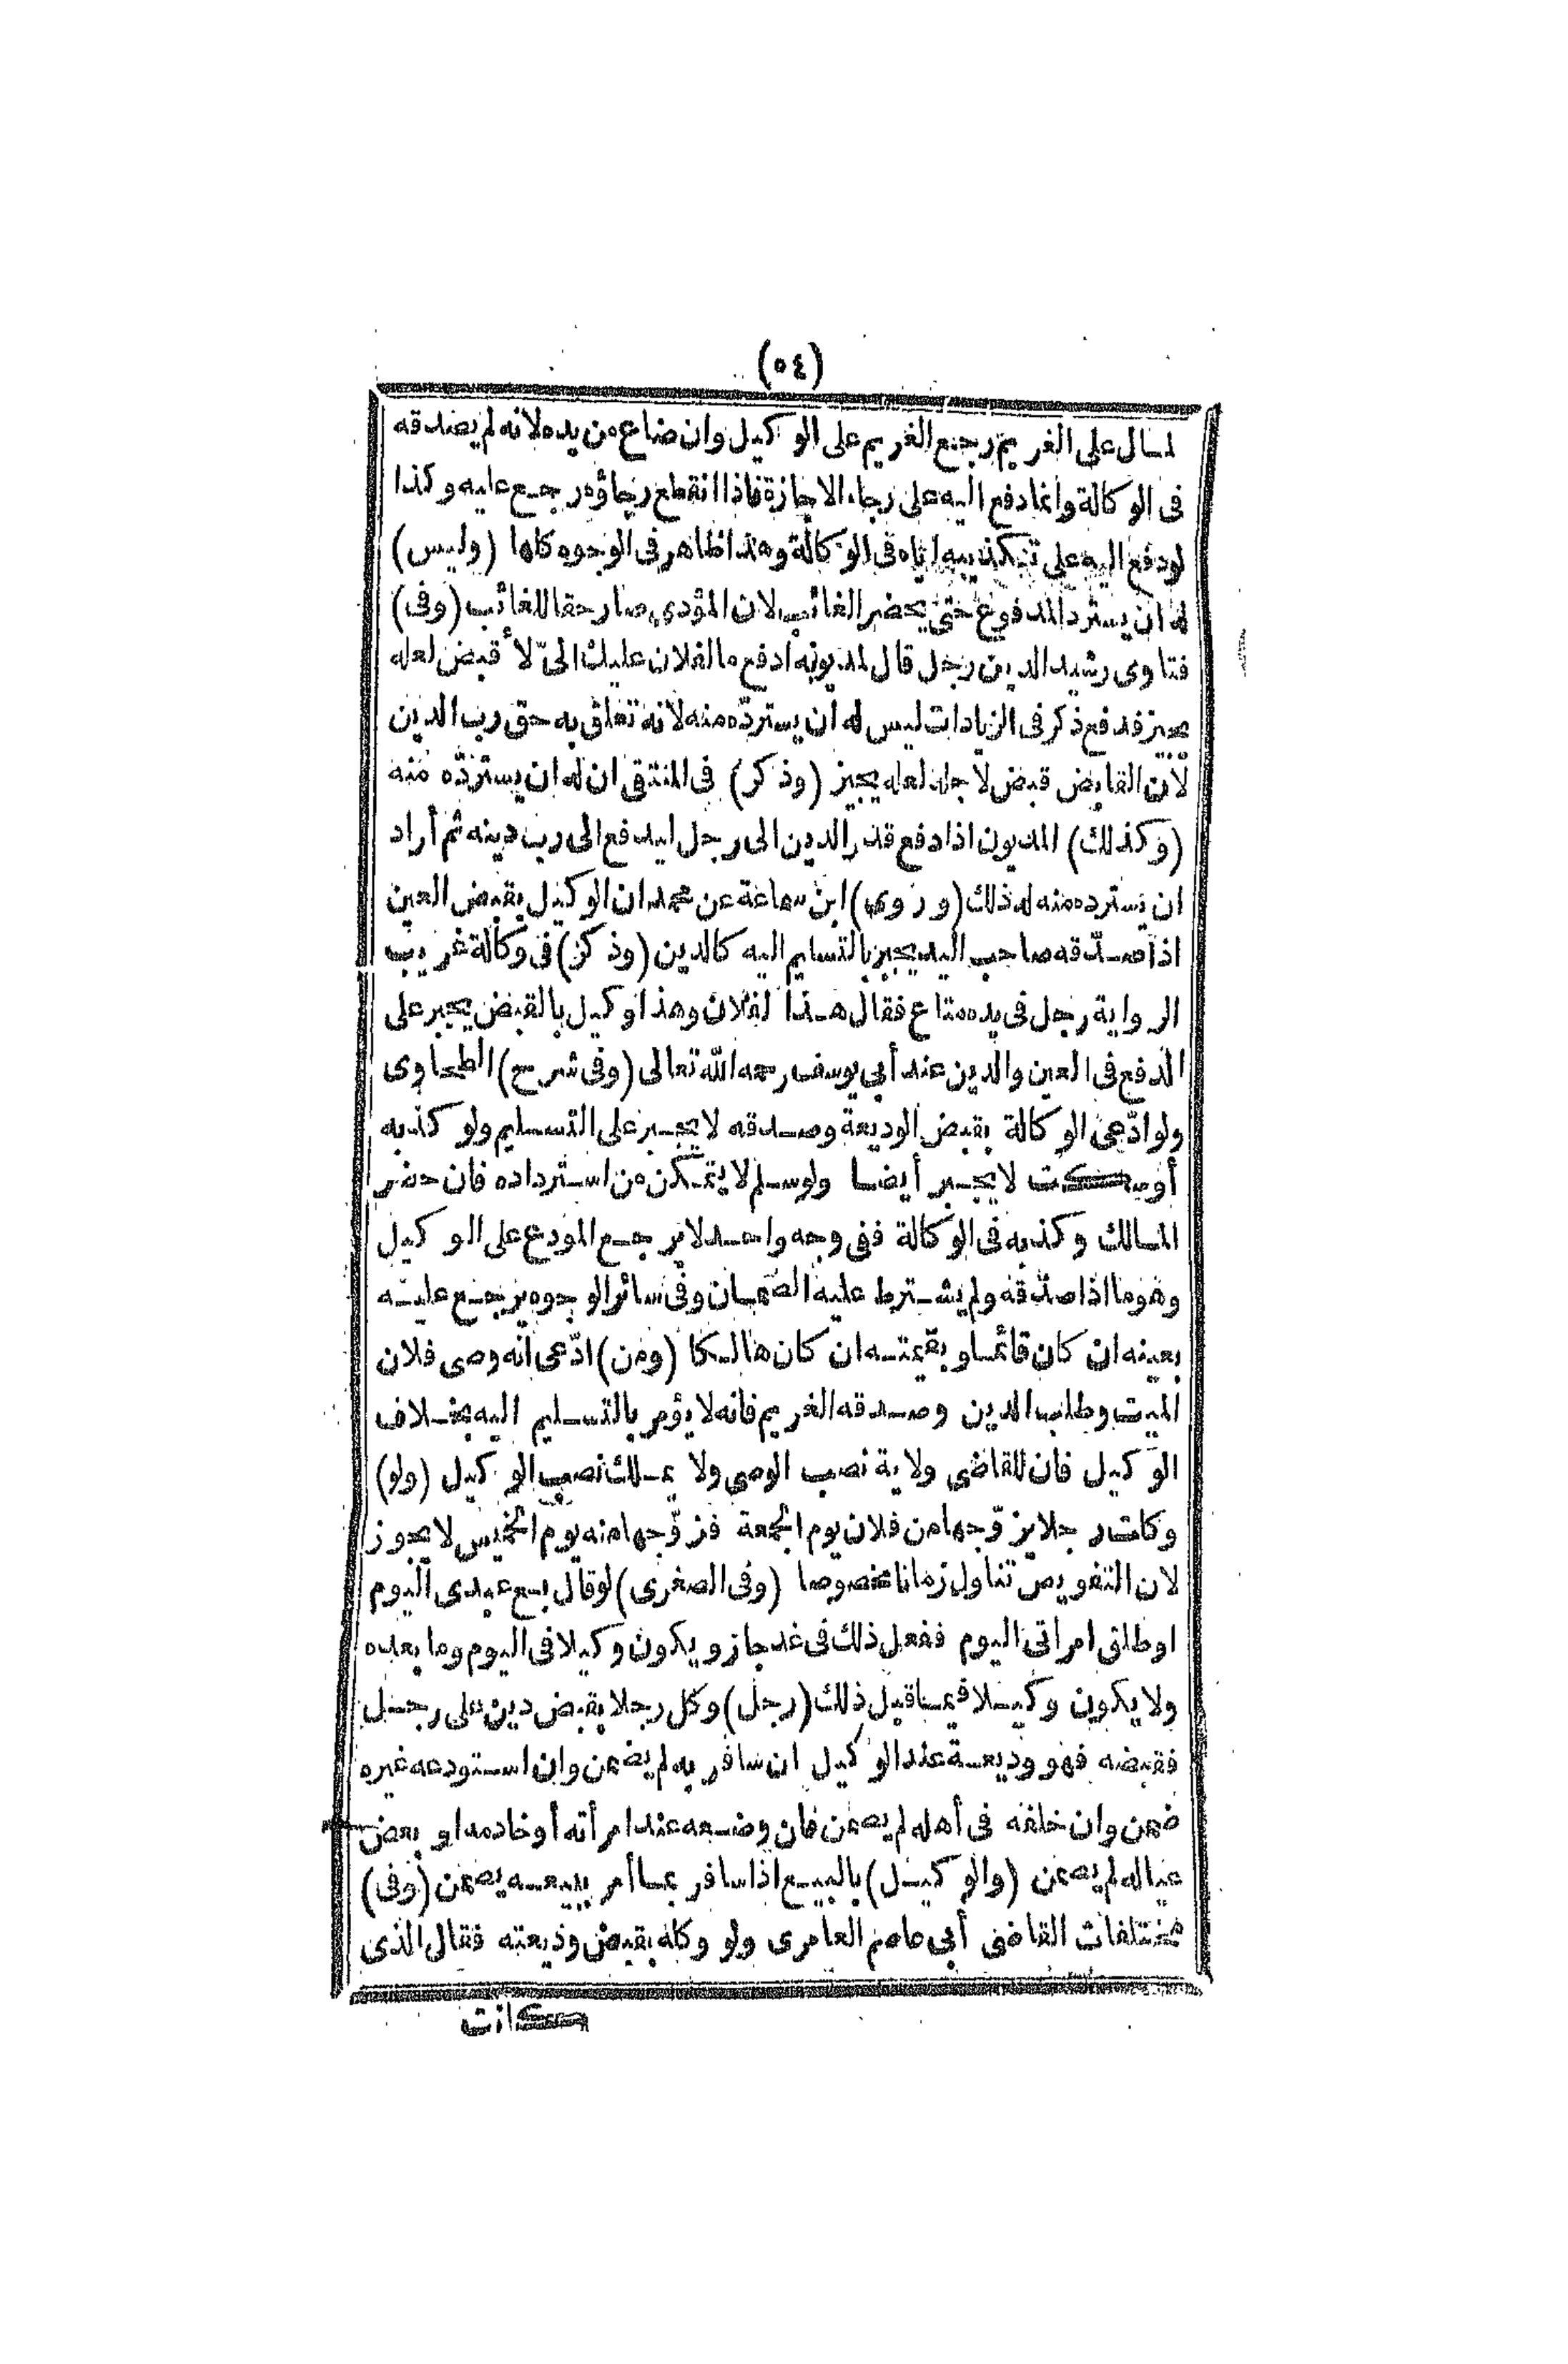 (٥٤)
لمال على الغريم رجع الغريم على الوكيل وان ضاع من يده لانه لم يصدقه
فى الوكالة وانما دفع اليه على رجاء الاجازة فاذا انقطع رجاؤه رجع عليه وكذا
لو دفع اليه على تكذيبه اياه فى الوكالة وهذا ظاهر فى الوجوه كلها (وليس)
له ان يسترد المدفوع حتى يحضر الغائب لان المؤدى صار حقا للغائب (وفى)
فتاوى رشيد الدين رجل قال لمديونه أدفع ما لفلان عليك الىّ لأ قبض لعله
يجيز فدفع ذكر فى الزيادات ليس له ان يستردّه منه لانه تعلق به حق رب الدين
لأن القابض قبض لاجله لعله يجيز (وذكر) فى المنتقى ان له ان يستردّه منه
(وكذلك) المديون اذا دفع قدر الدين الى رجل ليدفع الى رب دينه ثم أراد
ان يسترده منه له ذلك (وروى) ابن سماعة عن محمد ان الوكيل بقبض العين
اذا صدّقه صاحب اليد يجبر بالتسليم اليه كالدين (وذكر) فى وكالة غريب
الرواية رجل فى يده متاع فقال هذا لفلان وهذا وكيل بالقبض يجبر على
الدفع فى العين والدين عند أبى يوسف رحمه الله تعالى (وفى شرح) الطحاوى
ولو ادّعى الوكالة بقبض الوديعة وصدقه لا يجبر على التسليم ولو كذبه
أو سكت لا يجبر أيضا ولو سلم لا يتمكن من استرداده فان حضر
المالك وكذبه فى الوكالة ففى وجه واحد لا يرجع المودع على الوكيل
وهو ما اذا صدّقه ولم يشترط عليه الضمان وفى سائر الوجوه يرجع عليه
بعينه ان كان قائما وبقيمته ان كان هالكا (ومن) ادّعى انه وصى فلان
الميت وطلب الدين وصدقه الغريم فانه لا يؤمر بالتسليم اليه بخلاف
الوكيل فان للقاضى ولاية نصب الوصى ولا يملك نصب الوكيل (ولو)
وكلت رجلا يزوّجها من فلان يوم الجمعة فزوّجها منه يوم الخميس لا يجوز
لان التفويض تناول زمانا مخصوصا (وفى الصغرى) لو قال بع عبدى اليوم
او طلق امراتى اليوم ففعل ذلك فى غد جاز ويكون وكيلا فى اليوم وما بعده
ولا يكون وكيلا فيما قبل ذلك (رجل) وكل رجلا بقبض دين على رجل
فقبضه فهو وديعة عند الوكيل ان سافر به لم يضمن وان استودعه غيره
ضمن وان خلفه فى أهله لم يضمن فان وضعه عند امرأته أو خادمه او بعض
عياله لم يضمن (والوكيل) بالبيع اذا سافر بما أمر ببيعه يضمن (وفى)
مختلفات القاضى أبى عاصم العامرى ولو وكله بقبض وديعته فقال الذى
كانت